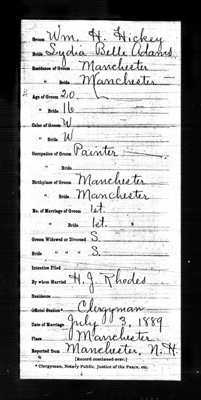 Groom Wm. H. Hickey
Bride Lydia Belle Adams
Residence of Groom Manchester
" Bride Manchester
Age of Groom 20
" Bride 16
Color of Groom W
" Bride W
Occupation of Groom Painter
" Bride
Birthplace of Groom Manchester
" Bride Manchester
No. of Marriage of Groom 1st.
" " Bride 1st.
Groom Widowed or Divorced S.
Bride " " " S.
Intention Filed
By whom Married H. J. Rhodes
Residence
Official Station* Clergyman
Date of Marriage July 3, 1889
Place Manchester
Reported from Manchester, N.H.
[Record continued over.]
* Clergyman, Notary Public, Justice of the Peace, etc.